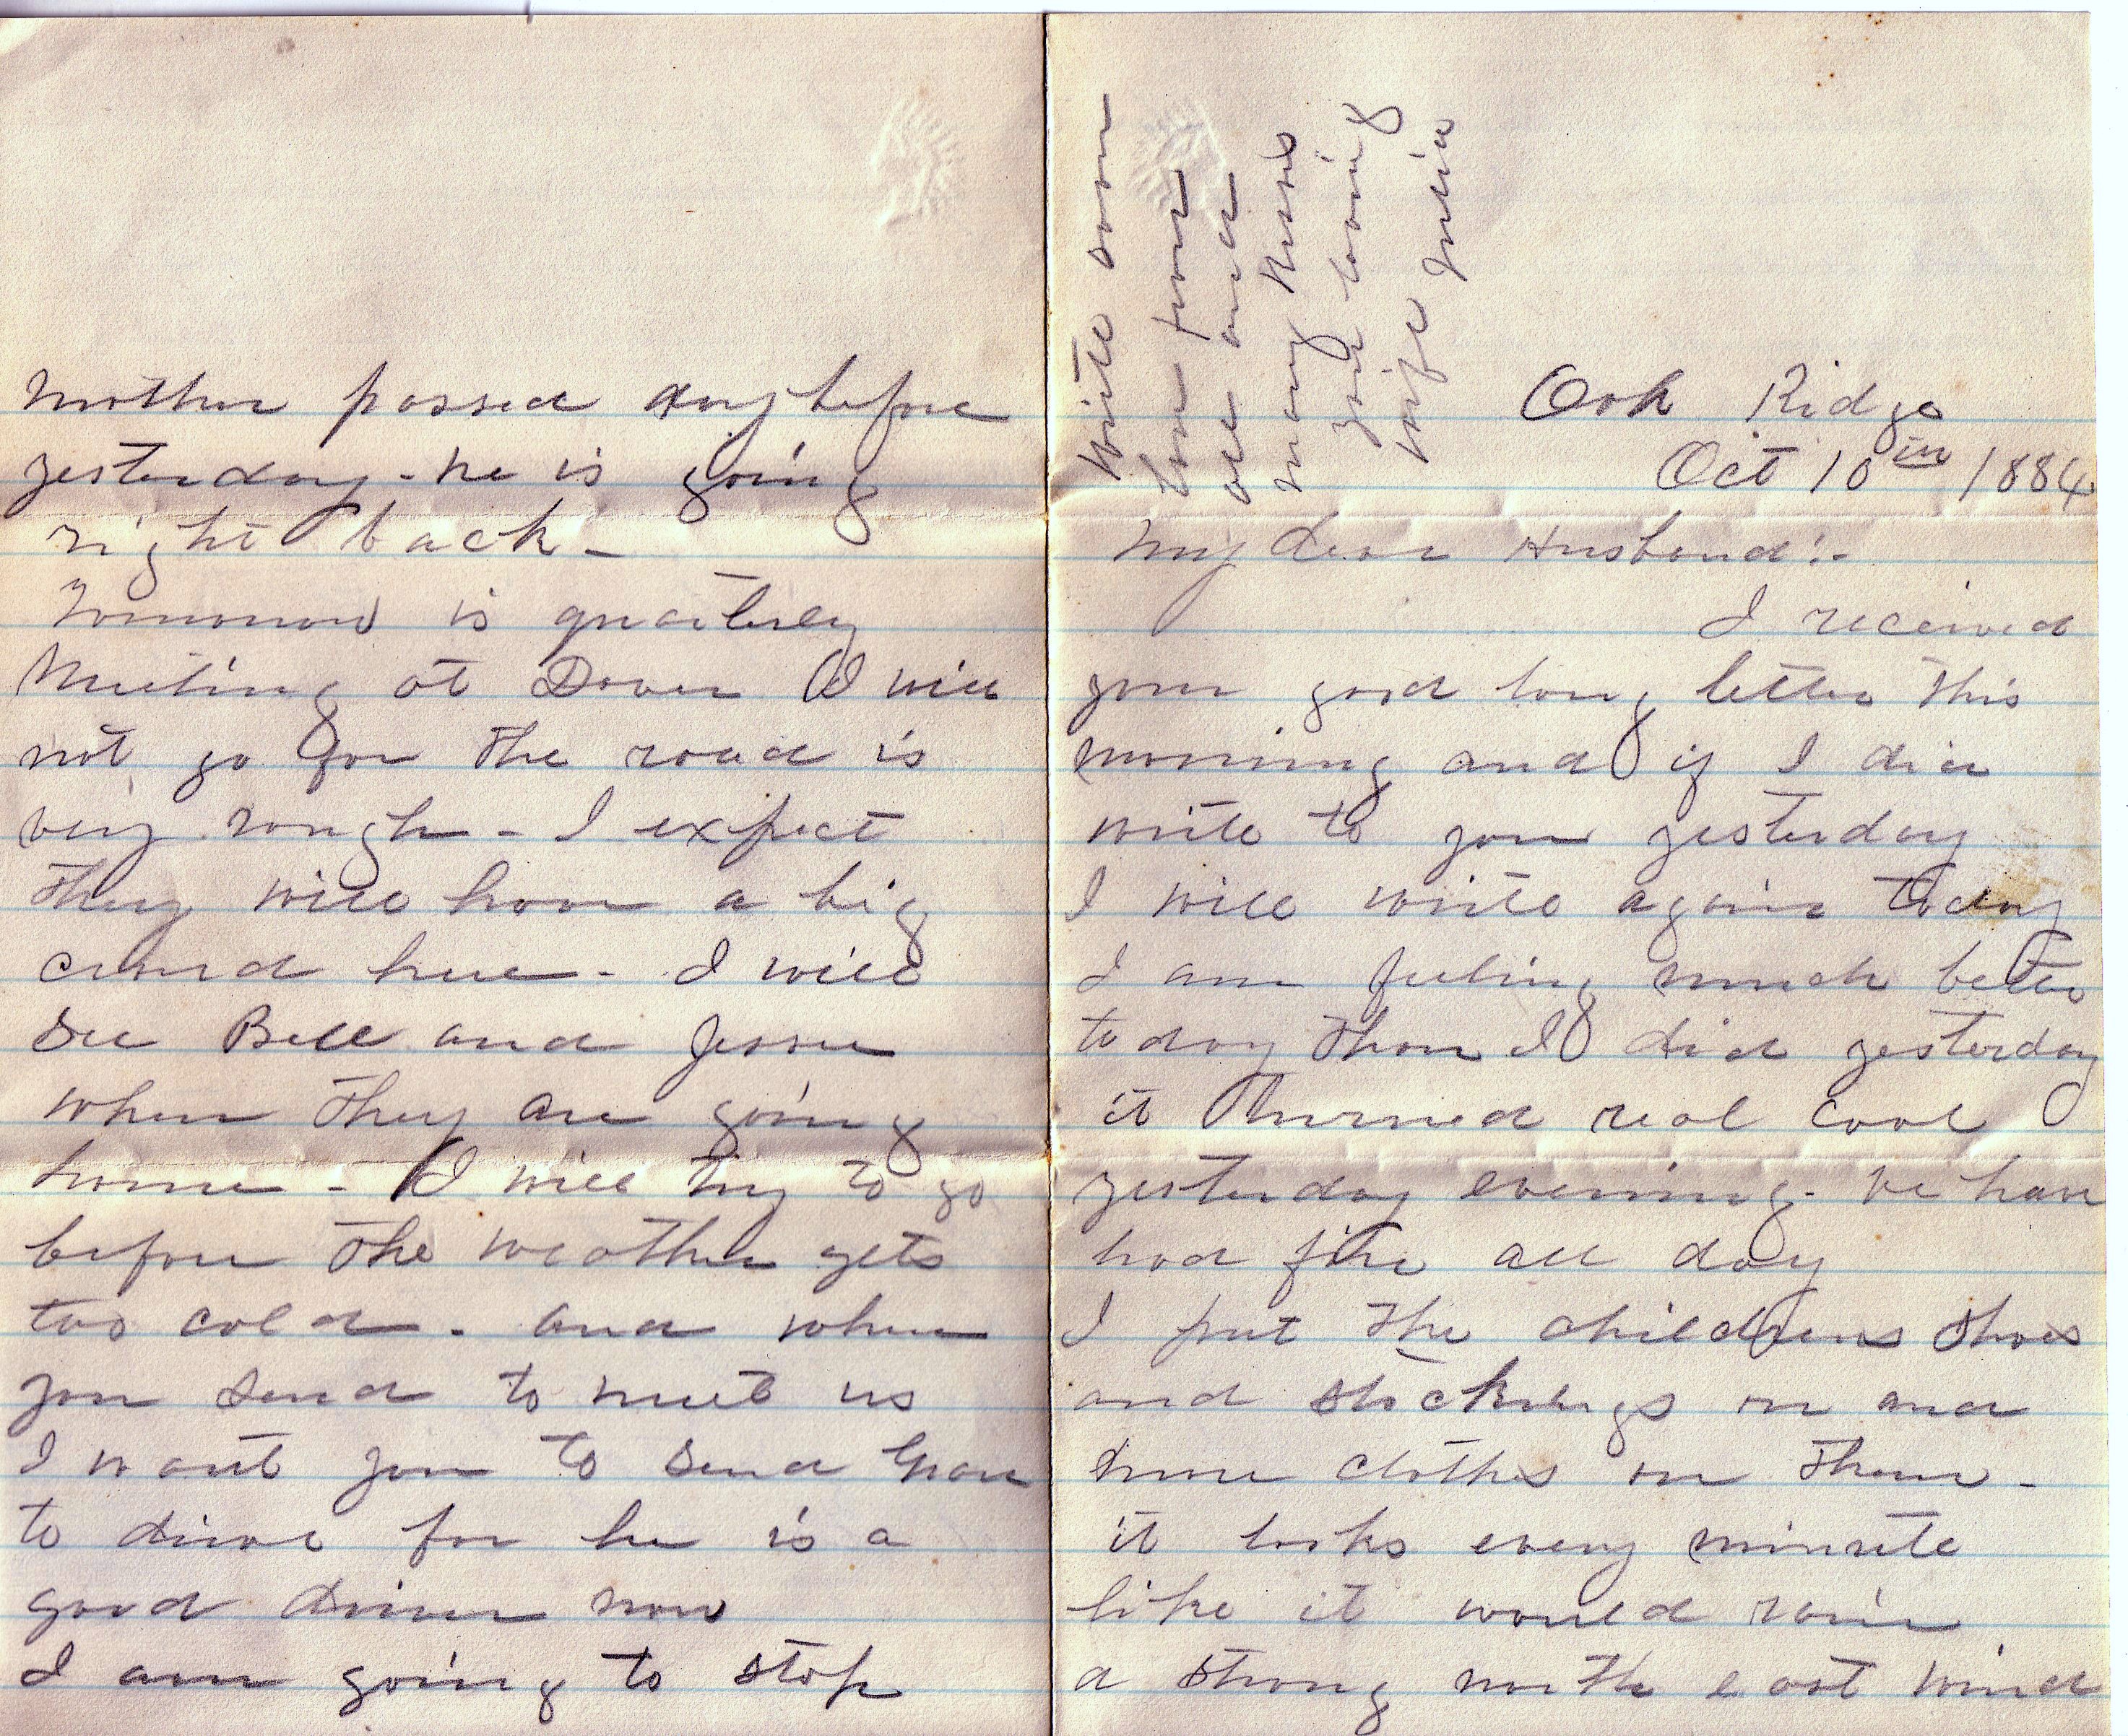 Oak Ridge
Oct 10th 1884
My dear Husband:-
I received
your good long letter this
morning and if I did
write to you yesterday
I will write again today
I am feeling much better
today than I did yesterday
it turned real cool
yesterday evening - we have
had fire all day
I put the childrens shoes
and stockings on and
more clothes on them -
it looks every minute
like it would rain
a strong north east wind
mother passed day before
yesterday - he is going
right back -
Tomorrow is quarterly
Meeting at Dover I will
not go for the road is
very rough - I expect
they will have a big
crowd here - I will
see Bell and Jessie
when they are going
home - I will try to go
before the weather gets
too cold - and when
you send to meet us
I want you to send
to drive for he is a
good driver now
I am going to stop
Write soon
Love from
all and
many kisses
your loving
wife Julia